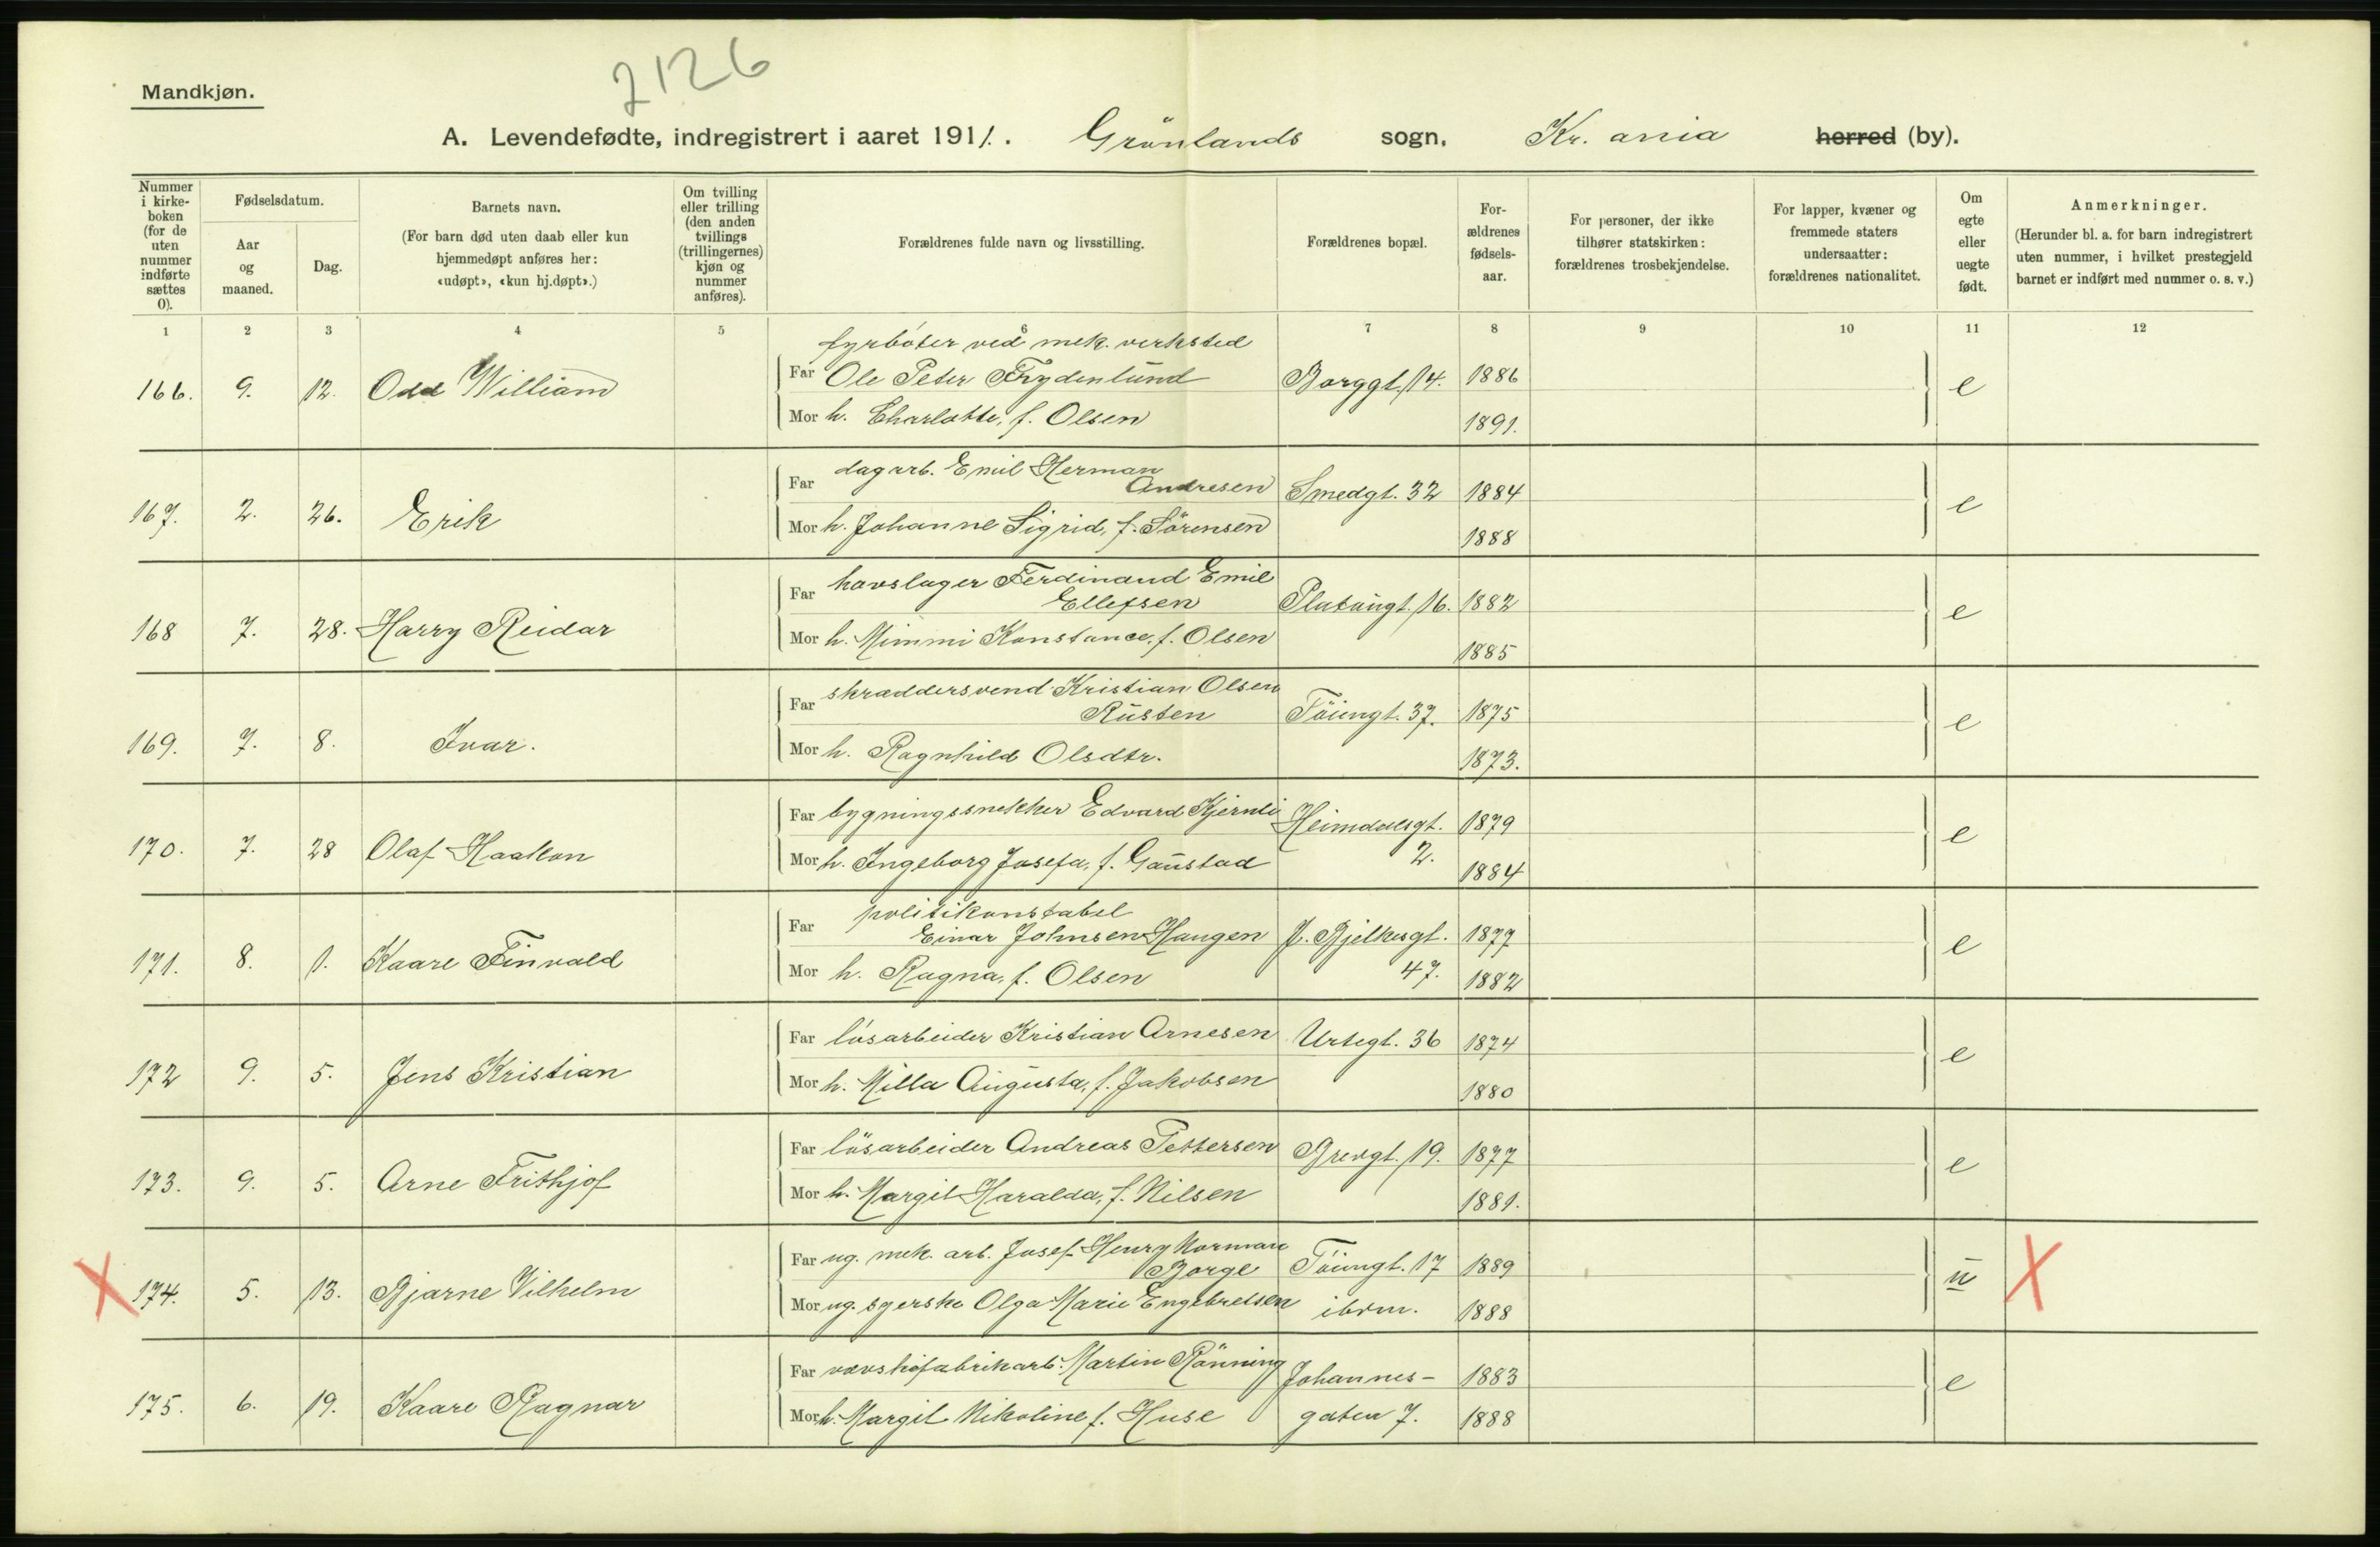 2126
Mandkjøn.
A. Levendefødte, indregistrert i aaret 1911. Grönlands sogn, Kr. ania herred (by).
Nummer i kirke-boken (for de uten nummer indførte sættes 0).
Fødselsdatum.
Aar og maaned.
Dag.
Barnets navn.
(For barn død uten daab eller kun hjemmedøpt anføres her: «udøpt», «kun hj.døpt».)
Om tvilling eller trilling (den anden tvillings (trillingernes) kjøn og nummer anføres).
Forældrenes fulde navn og livsstilling.
Forældrenes bopæl.
For-ældrenes fødsels-aar.
For personer, der ikke tilhører statskirken: forældrenes trosbekjendelse.
For lapper, kvæner og fremmede staters undersaatter: forældrenes nationalitet.
Om egte eller uegte født.
Anmerkninger.
(Herunder bl. a. for barn indregistrert uten nummer, i hvilket prestegjeld barnet er indført med nummer o. s. v.)
1 2 3 4 5 6 7 8 9 10 11 12
fyrböter ved mek. verksted
166. 9. 12. Odd William Far Ole Peter Frydenlund Borggt. 14. 1886 e
Mor h. Charlotte, f. Olsen 1891.
Far dagarb. Emil Herman
Andresen Smedgt. 32 1884
167. 2. 26. Erik e
Mor h. Johanne Sigrid, f. Sörensen 1888
Far hovslager Ferdinand Emil
Ellefsen Platougt. 16. 1882
168 7. 28. Harry Reidar e
Mor h. Mimmi Konstance, f. Olsen 1885
Far skræddersvend Kristian Olsen
Rusten Töiengt. 37. 1875
169. 7. 8. Ivar. e
Mor h. Ragnhild Olsdtr. 1873.
Far bygningssnekker Edvard Kjernli Heimdalsgt. 1879
170. 7. 28 Olaf Haakon e
Mor h. Ingeborg Josefa, f. Gaustad 2. 1884
politikonstabel
Far Einar Johnsen Haugen J. Bjelkesgt. 1877
171. 8. 1. Kaare Finvald e
Mor h. Ragna, f. Olsen 47. 1882
Far lösarbeider Kristian Arnesen Urtegt. 36 1874
172 9. 5. Jens Kristian e
Mor h. Milla Augusta, f. Jakobsen 1880
Far lösarbeider Andreas Pettersen Grevgt. 19. 1877
173. 9. 5. Arne Frithjof e
Mor h. Margit Haralda, f. Nilsen 1881.
Far ug. mek. arb. Josef Henry Norman
Borge Töiengt. 17 1889
X 174. 5. 13. Bjarne Vilhelm u X
Mor ug. syerske Olga Marie Engebretsen ibdm. 1888
Far vævskifabrikarb. Martin Rönning Johannes- 1883
175. 6. 19. Kaare Ragnar e
Mor h. Margit Nikoline f. Huse gaten 7. 1888